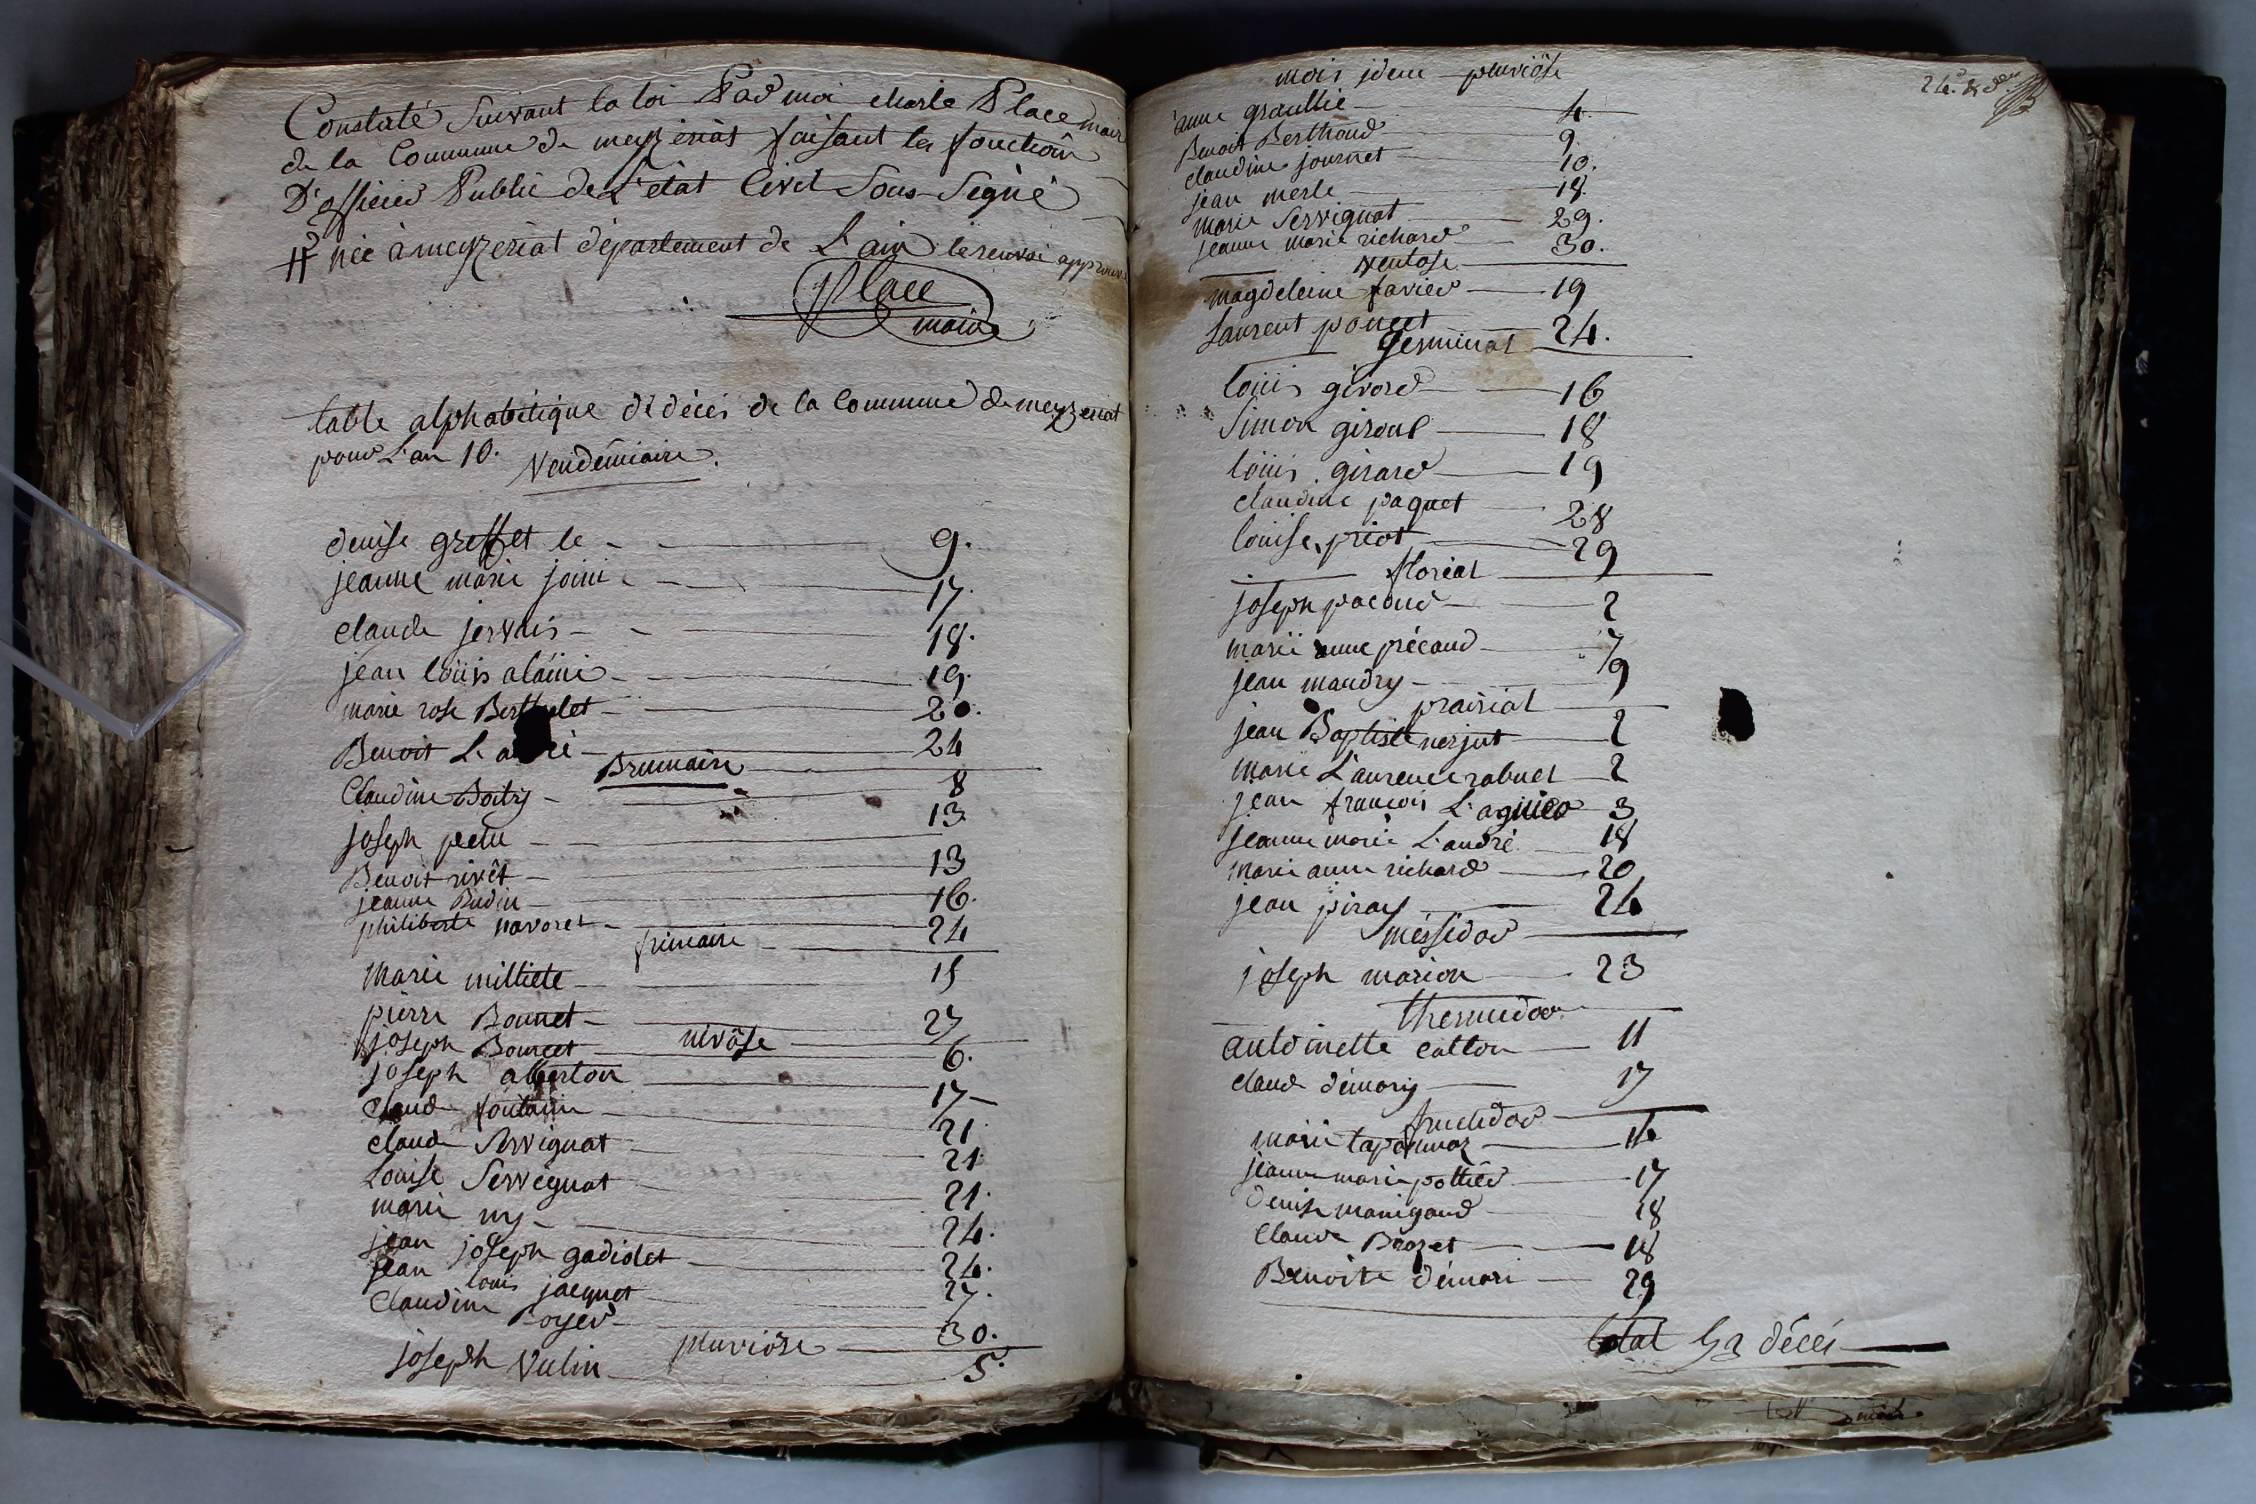 Constaté Suivant la loi Par moi charle Place maire
de la Commune de meyzériat faisant les fonction
D'officier Public de L'état Civil Sous Segné
# née à meyzeriat département de L'ain le renvoi approuvé
Place
maire
table alphabétique dé décés de la Commune de meyzeriat
pour L'an 10. Vendémiaire.
denise greffet le - 9.
jeanne marie joini - 17.
claude jervais - 18.
jean loüis alaini - 19.
marie rose Berthelet - 20.
Benoit L. - 24
Brumaire
Claudine Boity - 8
joseph petu - 13
Benoit rivêt - 13
jeanne Budin - 16.
philiberte navoret - 24
frimaire
marie milliete - 15
pierre Bonnet - 27
nivôse
joseph Bourcet - 6.
joseph alberton - 17
claude fontaine - 21.
claude Servignat - 21
Louise Servegnat - 21.
marie ny - 24.
jean joseph gadiolet - 24.
jean louis jacquet - 27.
claudine Boyer - 30.
pluviôse
joseph Vulin - 5.
24.
mois idem pluviôse
anne graullie - 4.
Benoit Berthoud - 9.
claudine journet - 10.
jean merle - 18.
marie Servignat - 29.
jeanne marie richard - 30.
Ventose
magdeleine favier - 19
Laurent poncet - 24.
Germinal
loüis girord - 16
Simon giroud - 18
loüis girard - 19
claudine paquet - 28
louise priot - 29
floréal
joseph pacoud - 2
marie anne précaud - 7
jean maudry - 9
prairial
jean Baptiste nerjut - 2
marie L'aurence rabuel - 2
jean francois L'agnier - 3
jeanne marie L'andré - 18
marie anne richard - 20
jean piray - 24
méssidor
joseph marion - 23
thermidor
antoinette catton - 11
claude démory - 17
fructidor
marie - 16
jeanne marie pottier - 17
denise manigand - 18
claude Brozet - 18
Benoite démori - 29
total 52 décés